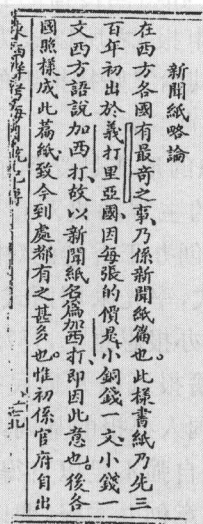 新聞紙略論
在西方各國有最奇之事、乃係新聞紙篇也。此樣書紙乃先三
百年初出於義打里亞國、因每張的價是小銅錢一文、小錢一
文西方語說加西打、故以新聞紙名爲加西打、即因此意也。後各
國照樣成此篇紙、致今到處都有之甚多也。惟初係官府自出